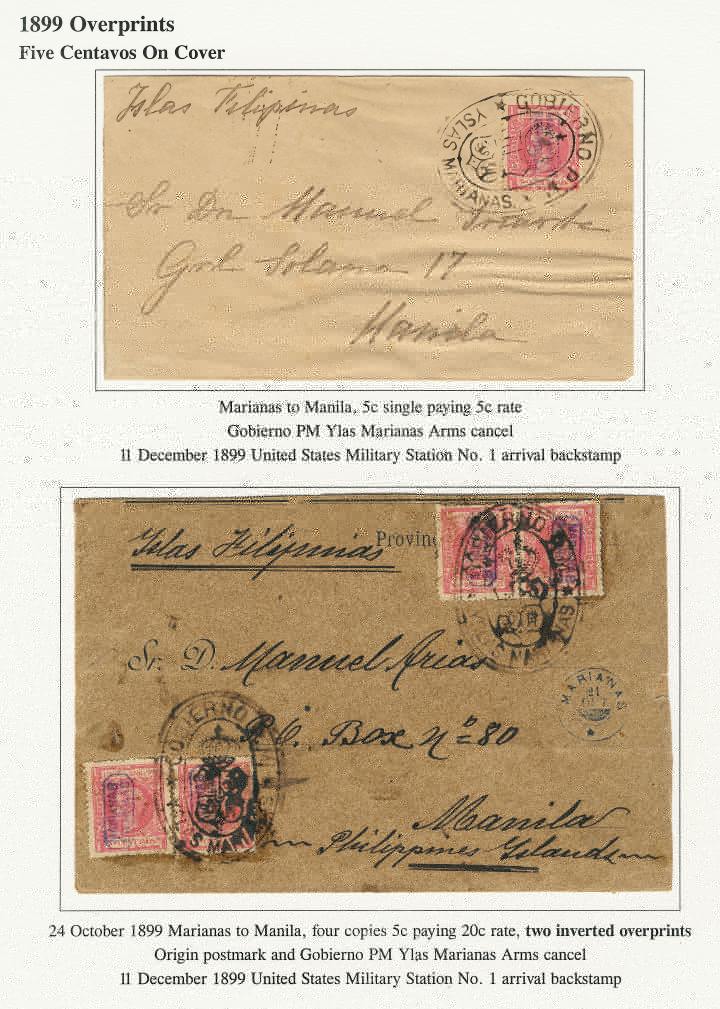 1899 Overprints
Five Centavos On Cover
Islas Filipinas
GOBIERNO P.
YSLAS MARIANAS.
Sr Dn Manuel Iriarte
Gral Solano 17
Manila
Marianas to Manila, 5c single paying 5c rate
Gobierno PM Ylas Marianas Arms cancel
11 December 1899 United States Military Station No. 1 arrival backstamp
Islas Filipinas
Provinc
Sr. D. Manuel Arias
MARIANAS
21
P.O. Box Nº=80
GOBIERNO
S. MARI
Manila
Philippines Islands
24 October 1899 Marianas to Manila, four copies 5c paying 20c rate, two inverted overprints
Origin postmark and Gobierno PM Ylas Marianas Arms cancel
11 December 1899 United States Military Station No. 1 arrival backstamp